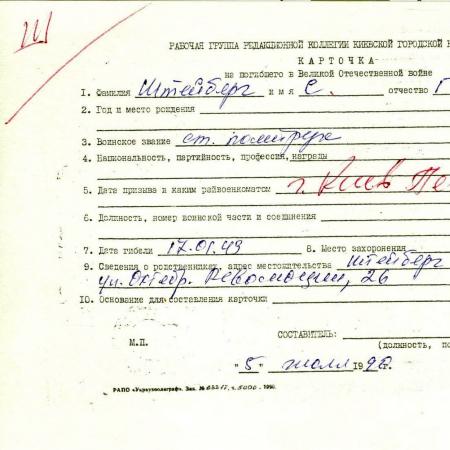 Ш
РАБОЧАЯ ГРУППА РЕДАКЦИОННОЙ КОЛЛЕГИИ КИЕВСКОЙ ГОРОДСКОЙ К
КАРТОЧКА
на погибшего в Великой Отечественной войне
1. Фамилия Штейберг имя С. отчество Г
2. Год и место рождения
3. Воинское звание ст. политрук
4. Национальность, партийность, профессия, награды
5. Дата призыва в каким райвоенкоматом г. Киев Пе
6. Должность, номер воинской части и соединения
7. Дата гибели 17.01.43 8. Место захоронения
9. Сведения о родственниках, адрес местожительства Штейберг
ул. Октябр. Революции, 26
10. Основание для составления карточки
СОСТАВИТЕЛЬ:
М.П. (должность, по
"5" июля 1990г.
РАПО «Укрвузполиграф». Зак. № т. 5000. 1990.